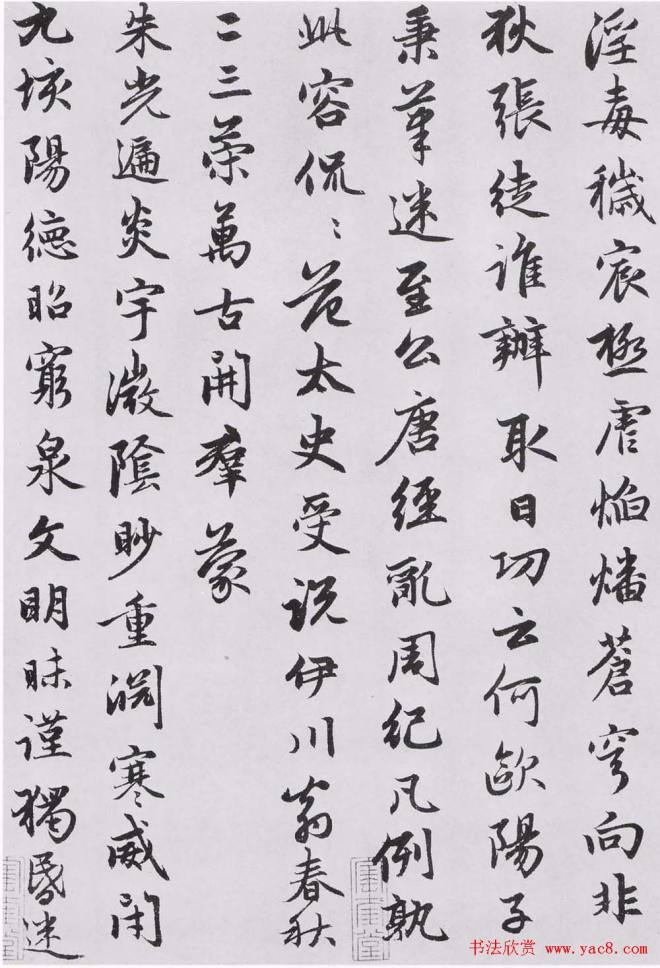 淫毒穢宸極虐焰燔蒼穹向非
狄張徒誰辦取日功云何歐陽子
秉筆迷至公唐經亂周紀凡例孰
此容侃〻范太史受說伊川翁春秋
二三策萬古開羣蒙
朱光遍炎宇微陰眇重淵寒威閉
九垓陽德昭窮泉文明昧謹獨昏迷
书法欣赏 www.yac8.com